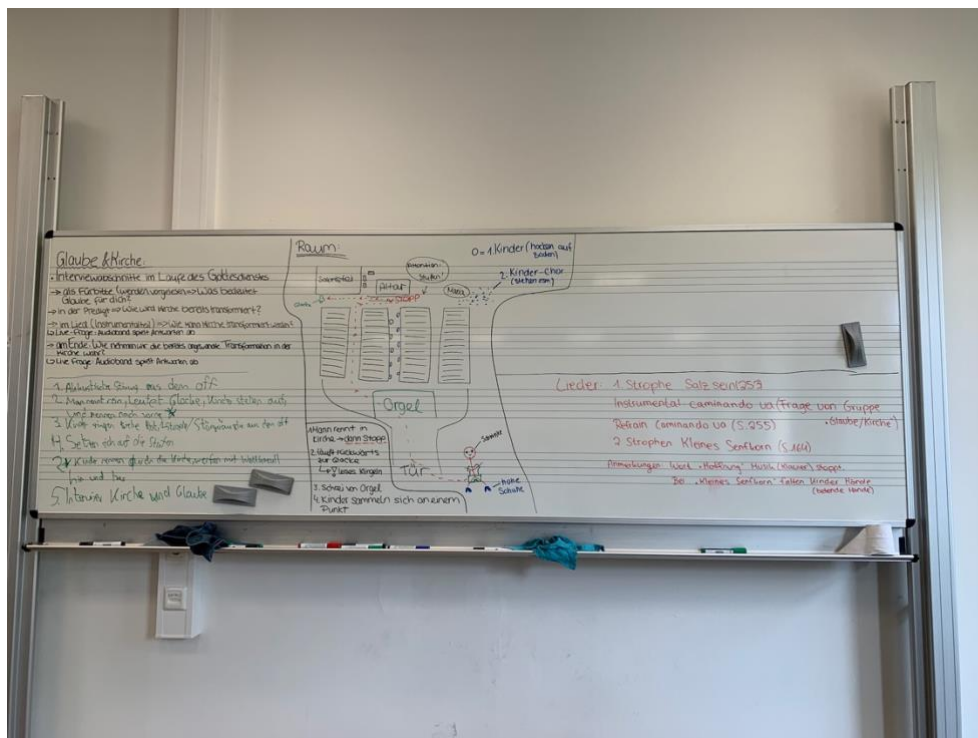 Glaube & Kirche:
• Interviewabschnitte im Laufe des Gottesdienstes
→ als Fürbitte (werden vorgelesen) => Was bedeutet
Glaube für dich?
→ in der Predigt => Wie wird Kirche bereits transformiert?
→ im Lied (Instrumentalteil) => Wie kann Kirche transformiert werden?
↳ Live-Frage: Audioband spielt Antworten ab
→ am Ende: Wie nehmen wir die bereits angewandte Transformation in der
Kirche wahr?
↳ Live Frage: Audioband spielt Antworten ab
1. Stimme aus dem off
2. Mann rennt rein, Glocke, Kinder stehen auf
und rennen nach vorne
3. Kinder aus dem off
4. Setzen sich auf die Stufen
Kinder rennen durch die Kirche, werfen mit
hin und her
5. Interview Kirche und Glaube
Raum:
Sakristei
Altar
Stufen!
STOPP
0 = 1. Kinder (hocken auf
Boden)
2. Kinder-Chor
(stehen)
Orgel
Tür
1. Mann rennt in
Kirche → dann Stopp
2. läuft rückwärts
zur Glocke
↳ lautes Klingeln
3. Schrei von Orgel
4. Kinder sammeln sich an einem
Punkt
hohe
Schuhe
Lieder: 1. Strophe Salz sein! 253
Instrumental caminando va (Frage von Gruppe
• Glaube/Kirche)
Refrain Caminando va (S. 255)
2 Strophen Kleines Senfkorn (S. 164)
Anmerkungen: Wort "Hoffnung" Musik (Klavier) stoppt.
Bei "Kleines Senfkorn" falten Kinder Hände
(betende Hände)